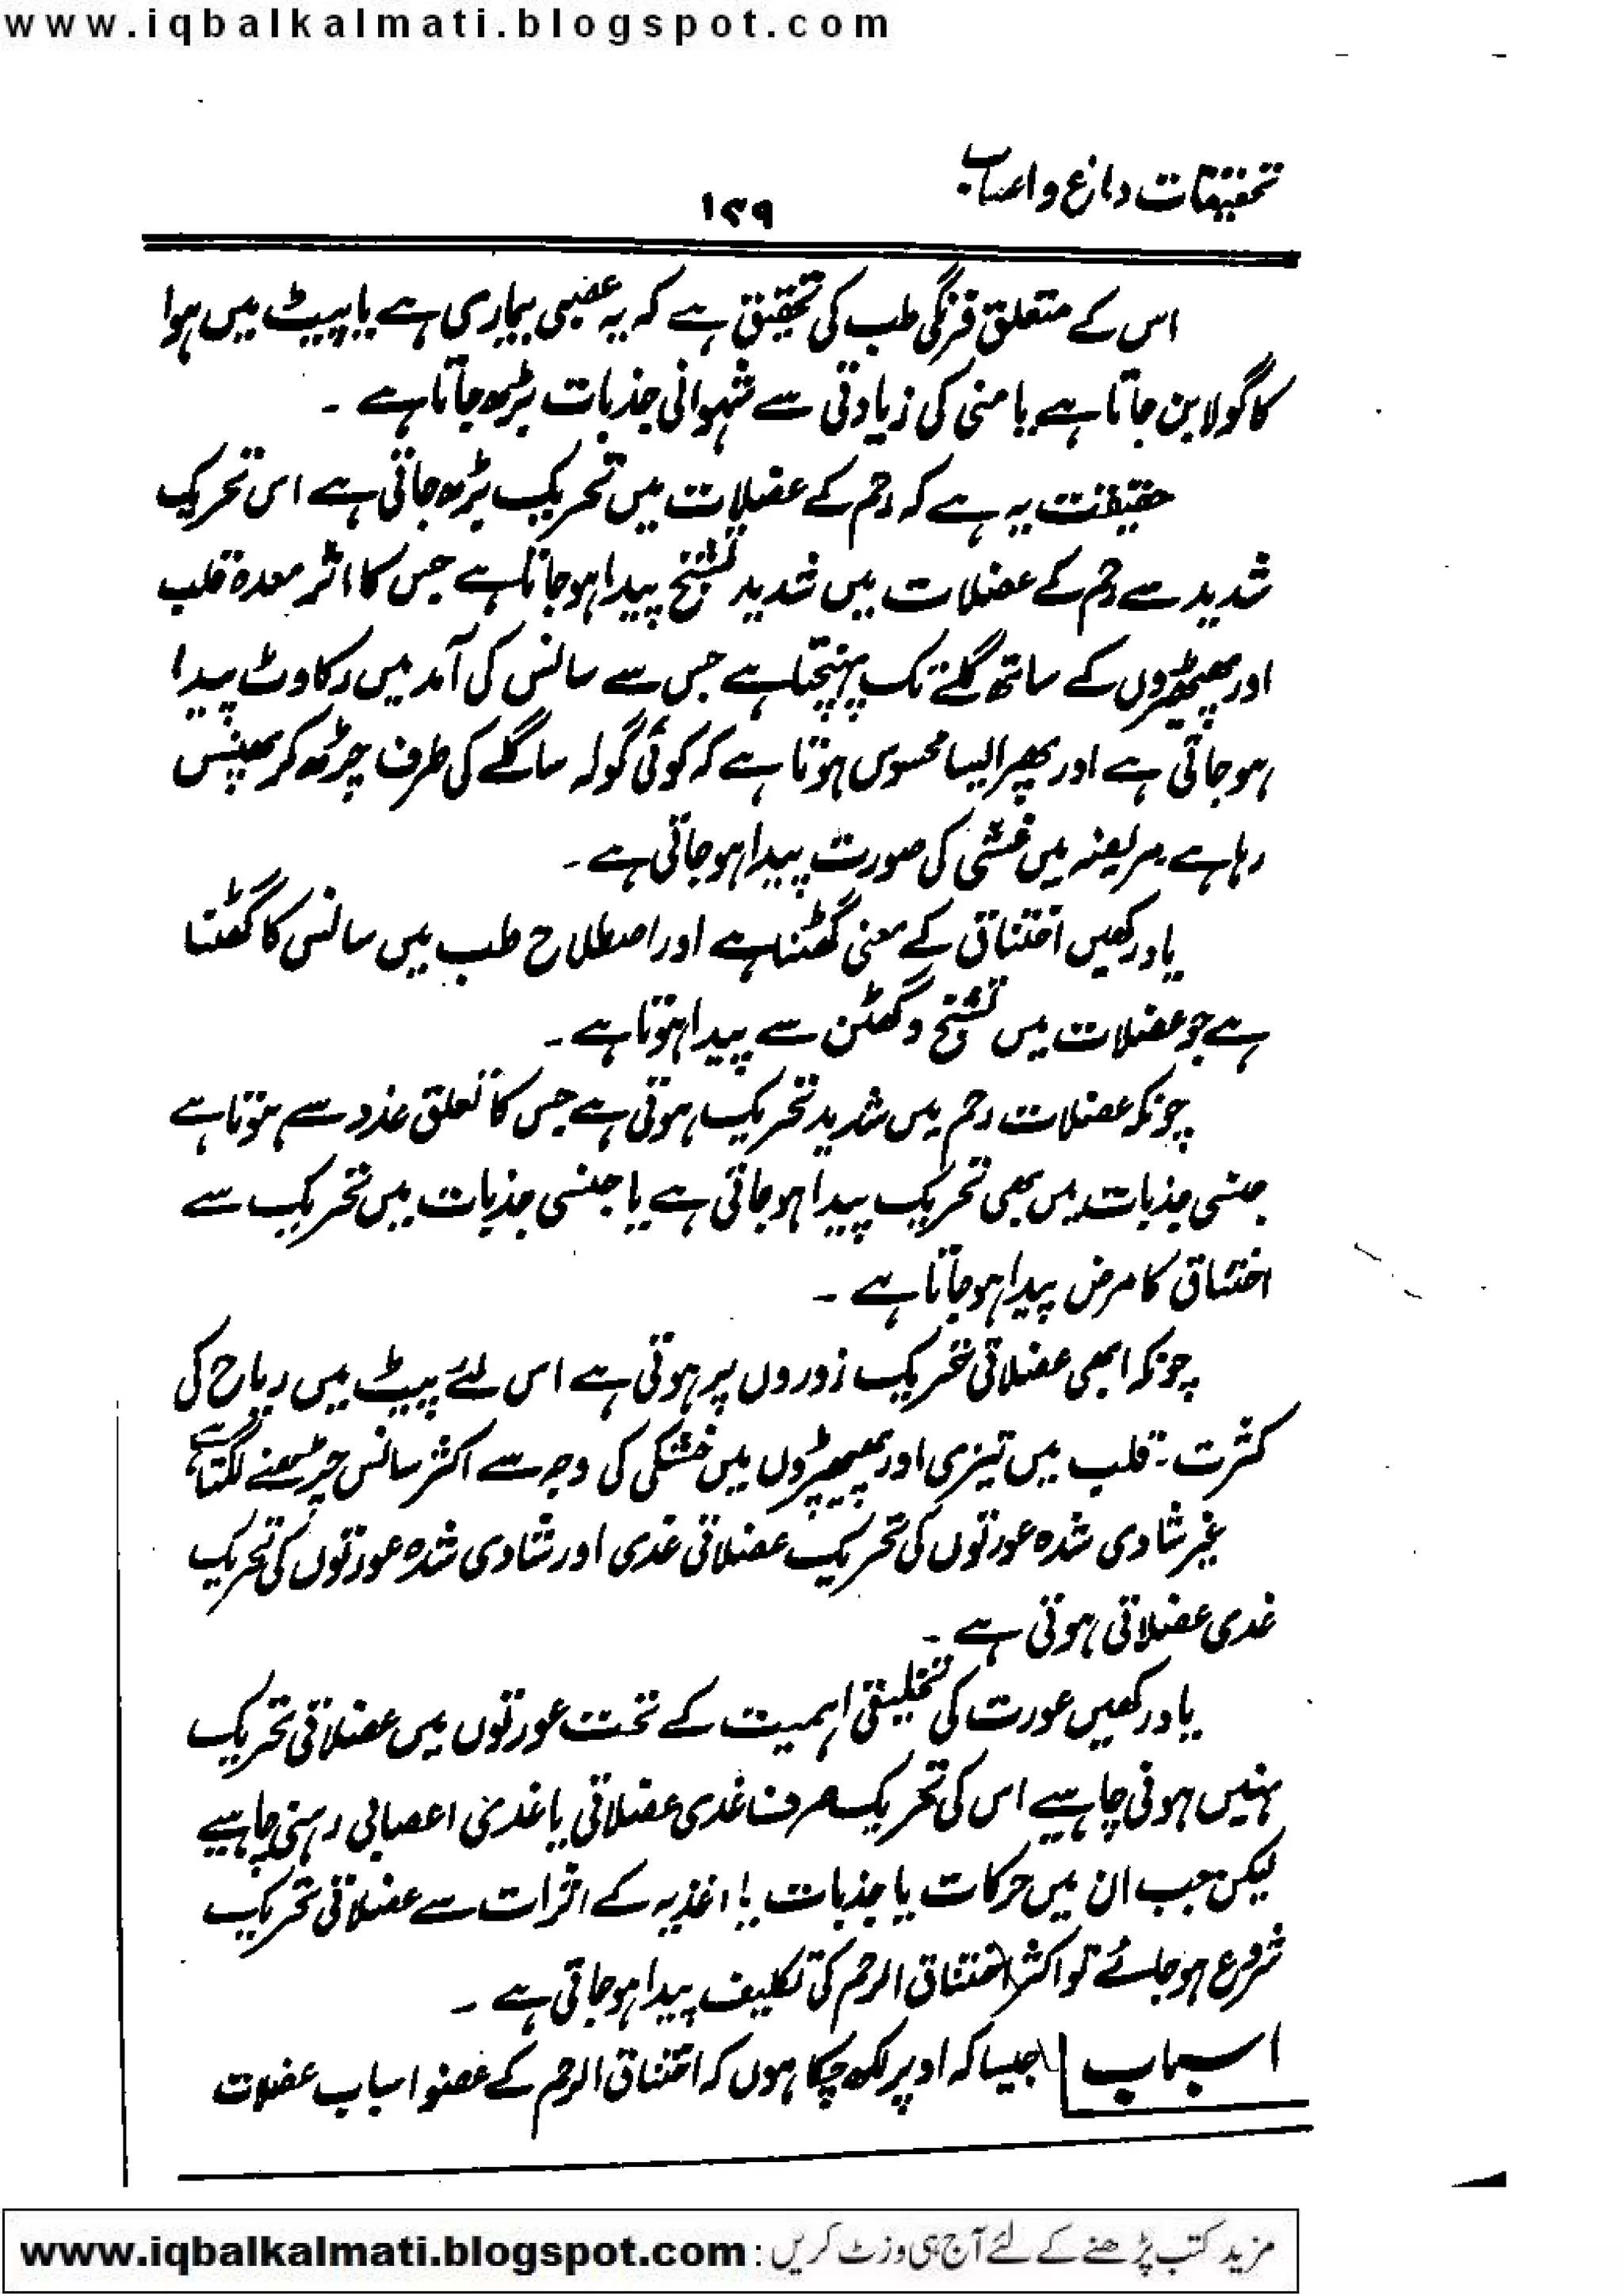 www.iqbalkalmati.blogspot.com
تحقیقات دماغ و اعصاب
۱۲۹
اس کے متعلق فرنگی طب کی تحقیق ہے کہ یہ عصبی بیماری ہے یا پیٹ میں ہوا
کا گولا بن جاتا ہے یا منی کی زیادتی سے شہوانی جذبات بڑھ جاتا ہے ۔
حقیقت یہ ہے کہ رحم کے عضلات میں تحریک بڑھ جاتی ہے اس تحریک
شدید سے رحم کے عضلات میں شدید تشنج پیدا ہو جاتا ہے جس کا اثر معدہ قلب
اور پھیپھڑوں کے ساتھ گلے تک پہنچتا ہے جس سے سانس کی آمد میں رکاوٹ پیدا
ہو جاتی ہے اور پھر ایسا محسوس ہوتا ہے کہ کوئی گولہ سا گلے کی طرف چڑھ کر پھنس
رہا ہے مریضہ میں غشی کی صورت پیدا ہو جاتی ہے ۔
یاد رکھیں اختناق کے معنی گھٹنا ہے اور اصطلاح طب میں سانس کا گھٹنا
ہے جو عضلات میں تشنج و گھٹن سے پیدا ہوتا ہے ۔
چونکہ عضلات رحم میں شدید تحریک ہوتی ہے جس کا تعلق غدد سے ہوتا ہے
جنسی جذبات میں بھی تحریک پیدا ہو جاتی ہے یا جنسی جذبات میں تحریک سے
اختناق کا مرض پیدا ہو جاتا ہے ۔
چونکہ ابھی عضلاتی تحریک زوروں پر ہوتی ہے اس لئے پیٹ میں ریاح کی
کثرت ۔ قلب میں تیزی اور پھیپھڑوں میں خشکی کی وجہ سے اکثر سانس چڑھنے لگتا ہے
غیر شادی شدہ عورتوں کی تحریک عضلاتی غدی اور شادی شدہ عورتوں کی تحریک
غدی عضلاتی ہوتی ہے ۔
یاد رکھیں عورت کی تخلیقی اہمیت کے تحت عورتوں میں عضلاتی تحریک
نہیں ہونی چاہیے اس کی تحریک صرف غدی عضلاتی یا غدی اعصابی رہنی چاہیے
لیکن جب ان میں حرکات یا جذبات یا اغذیہ کے اثرات سے عضلاتی تحریک
شروع ہو جائے تو اکثر اختناق الرحم کی تکلیف پیدا ہو جاتی ہے ۔
اسباب جیسا کہ اوپر لکھ چکا ہوں کہ اختناق الرحم کے عضو اسباب عضلات
مزید کتب پڑھنے کے لئے آج ہی وزٹ کریں : www.iqbalkalmati.blogspot.com